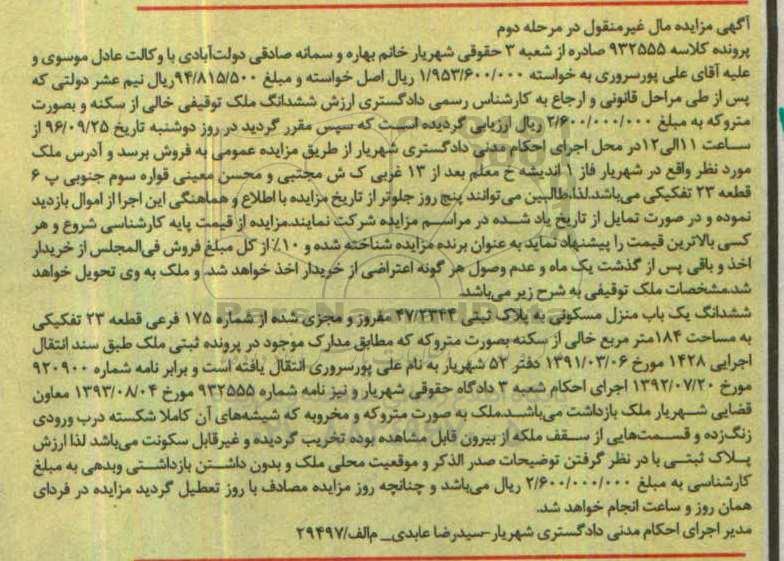 آگهی مزایده مال غیرمنقول در مرحله دوم
پرونده کلاسه ۹۳۲۵۵۵ صادره از شعبه ۳ حقوقی شهریار خانم بهاره و سمانه صادقی دولت‌آبادی با وکالت عادل موسوی و
علیه آقای علی پورسروری به خواسته ۱/۹۵۳/۶۰۰/۰۰۰ ریال اصل خواسته و مبلغ ۹۴/۸۱۵/۵۰۰ریال نیم عشر دولتی که
پس از طی مراحل قانونی و ارجاع به کارشناس رسمی دادگستری ارزش ششدانگ ملک توقیفی خالی از سکنه و بصورت
متروکه به مبلغ ۲/۶۰۰/۰۰۰/۰۰۰ ریال ارزیابی گردیده است که سپس مقرر گردید در روز دوشنبه تاریخ ۹۶/۰۹/۲۵ از
ساعت ۱۱الی۱۲در محل اجرای احکام مدنی دادگستری شهریار از طریق مزایده عمومی به فروش برسد و آدرس ملک
مورد نظر واقع در شهریار فاز ۱ اندیشه خ معلم بعد از ۱۳ غربی ک ش مجتبی و محسن معینی قواره سوم جنوبی پ ۶
قطعه ۲۳ تفکیکی می‌باشد.لذا،طالبین می‌توانند پنج روز جلوتر از تاریخ مزایده با اطلاع و هماهنگی این اجرا از اموال بازدید
نموده و در صورت تمایل از تاریخ یاد شده در مراسم مزایده شرکت نمایند.مزایده از قیمت پایه کارشناسی شروع و هر
کسی بالاترین قیمت را پیشنهاد نماید به عنوان برنده مزایده شناخته شده و ۱۰٪ از کل مبلغ فروش فی‌المجلس از خریدار
اخذ و باقی پس از گذشت یک ماه و عدم وصول هر گونه اعتراضی از خریدار اخذ خواهد شد. و ملک به وی تحویل خواهد
شد.مشخصات ملک توقیفی به شرح زیر می‌باشد.
ششدانگ یک باب منزل مسکونی به پلاک ثبتی ۴۷/۲۳۴۴ مفروز و مجزی شده از شماره ۱۷۵ فرعی قطعه ۲۳ تفکیکی
به مساحت ۱۸۴متر مربع خالی از سکنه بصورت متروکه که مطابق مدارک موجود در پرونده ثبتی ملک طبق سند انتقال
اجرایی ۱۴۲۸ مورخ ۱۳۹۱/۰۳/۰۶ دفتر ۵۲ شهریار به نام علی پورسروری انتقال یافته است و برابر نامه شماره ۹۲۰۹۰۰
مورخ ۱۳۹۲/۰۷/۲۰ اجرای احکام شعبه ۳ دادگاه حقوقی شهریار و نیز نامه شماره ۹۳۲۵۵۵ مورخ ۱۳۹۳/۰۸/۰۴ معاون
قضایی شهریار ملک بازداشت می‌باشد.ملک به صورت متروکه و مخروبه که شیشه‌های آن کاملا شکسته درب ورودی
زنگ‌زده و قسمت‌هایی از سقف ملکه از بیرون قابل مشاهده بوده تخریب گردیده و غیرقابل سکونت می‌باشد لذا ارزش
پلاک ثبتی با در نظر گرفتن توضیحات صدر الذکر و موقعیت محلی ملک و بدون داشتن بازداشتی وبدهی به مبلغ
کارشناسی به مبلغ ۲/۶۰۰/۰۰۰/۰۰۰ ریال می‌باشد و چنانچه روز مزایده مصادف با روز تعطیل گردید مزایده در فردای
همان روز و ساعت انجام خواهد شد.
مدیر اجرای احکام مدنی دادگستری شهریار-سیدرضا عابدی_ م‌الف/۲۹۴۹۷